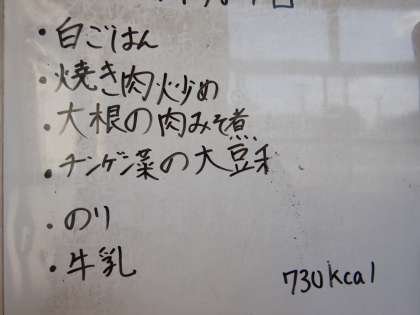 ・白ごはん
・焼き肉炒め
・大根の肉みそ煮
・チンゲン菜の大豆和
・のり
・牛乳
730kcal